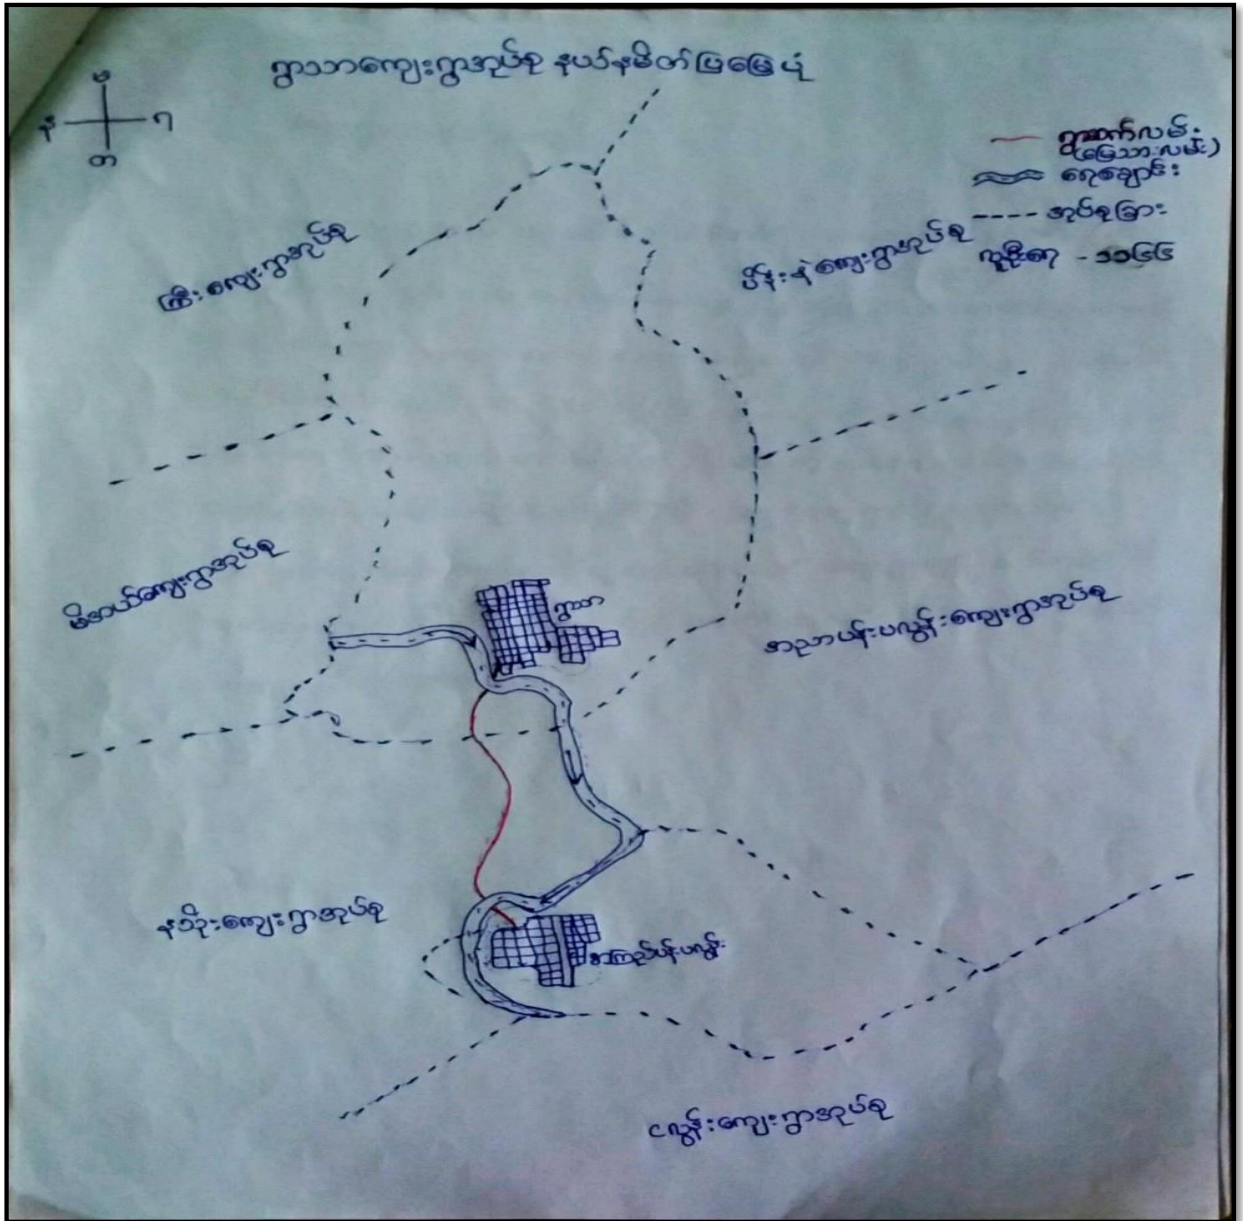 ရွာသာကျေးရွာအုပ်စု နယ်နမိတ်ပြမြေပုံ
မ
န
ဂ
တ
ရွာဆက်လမ်း
(မြေသားလမ်း)
ရေချောင်း
အုပ်စုခြား
လူဦးရေ - ၁၁၆၆
ကြီးကျေးရွာအုပ်စု
ပိန်းနဲကျေးရွာအုပ်စု
မိအယ်ကျေးရွာအုပ်စု
ရွာသာ
အညာပန်းပလွန်းကျေးရွာအုပ်စု
နံသိုးကျေးရွာအုပ်စု
အကြည်ပန်းပလွန်း
ငလွန်းကျေးရွာအုပ်စု